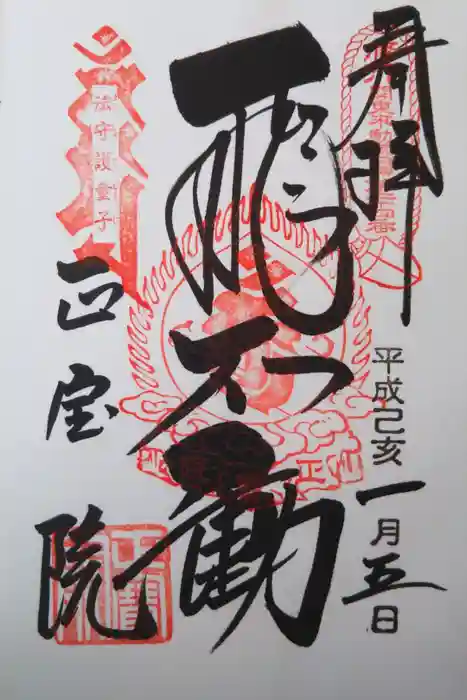 奉拝
平成己亥
一月五日
飛不動
法守護童子
正宝院